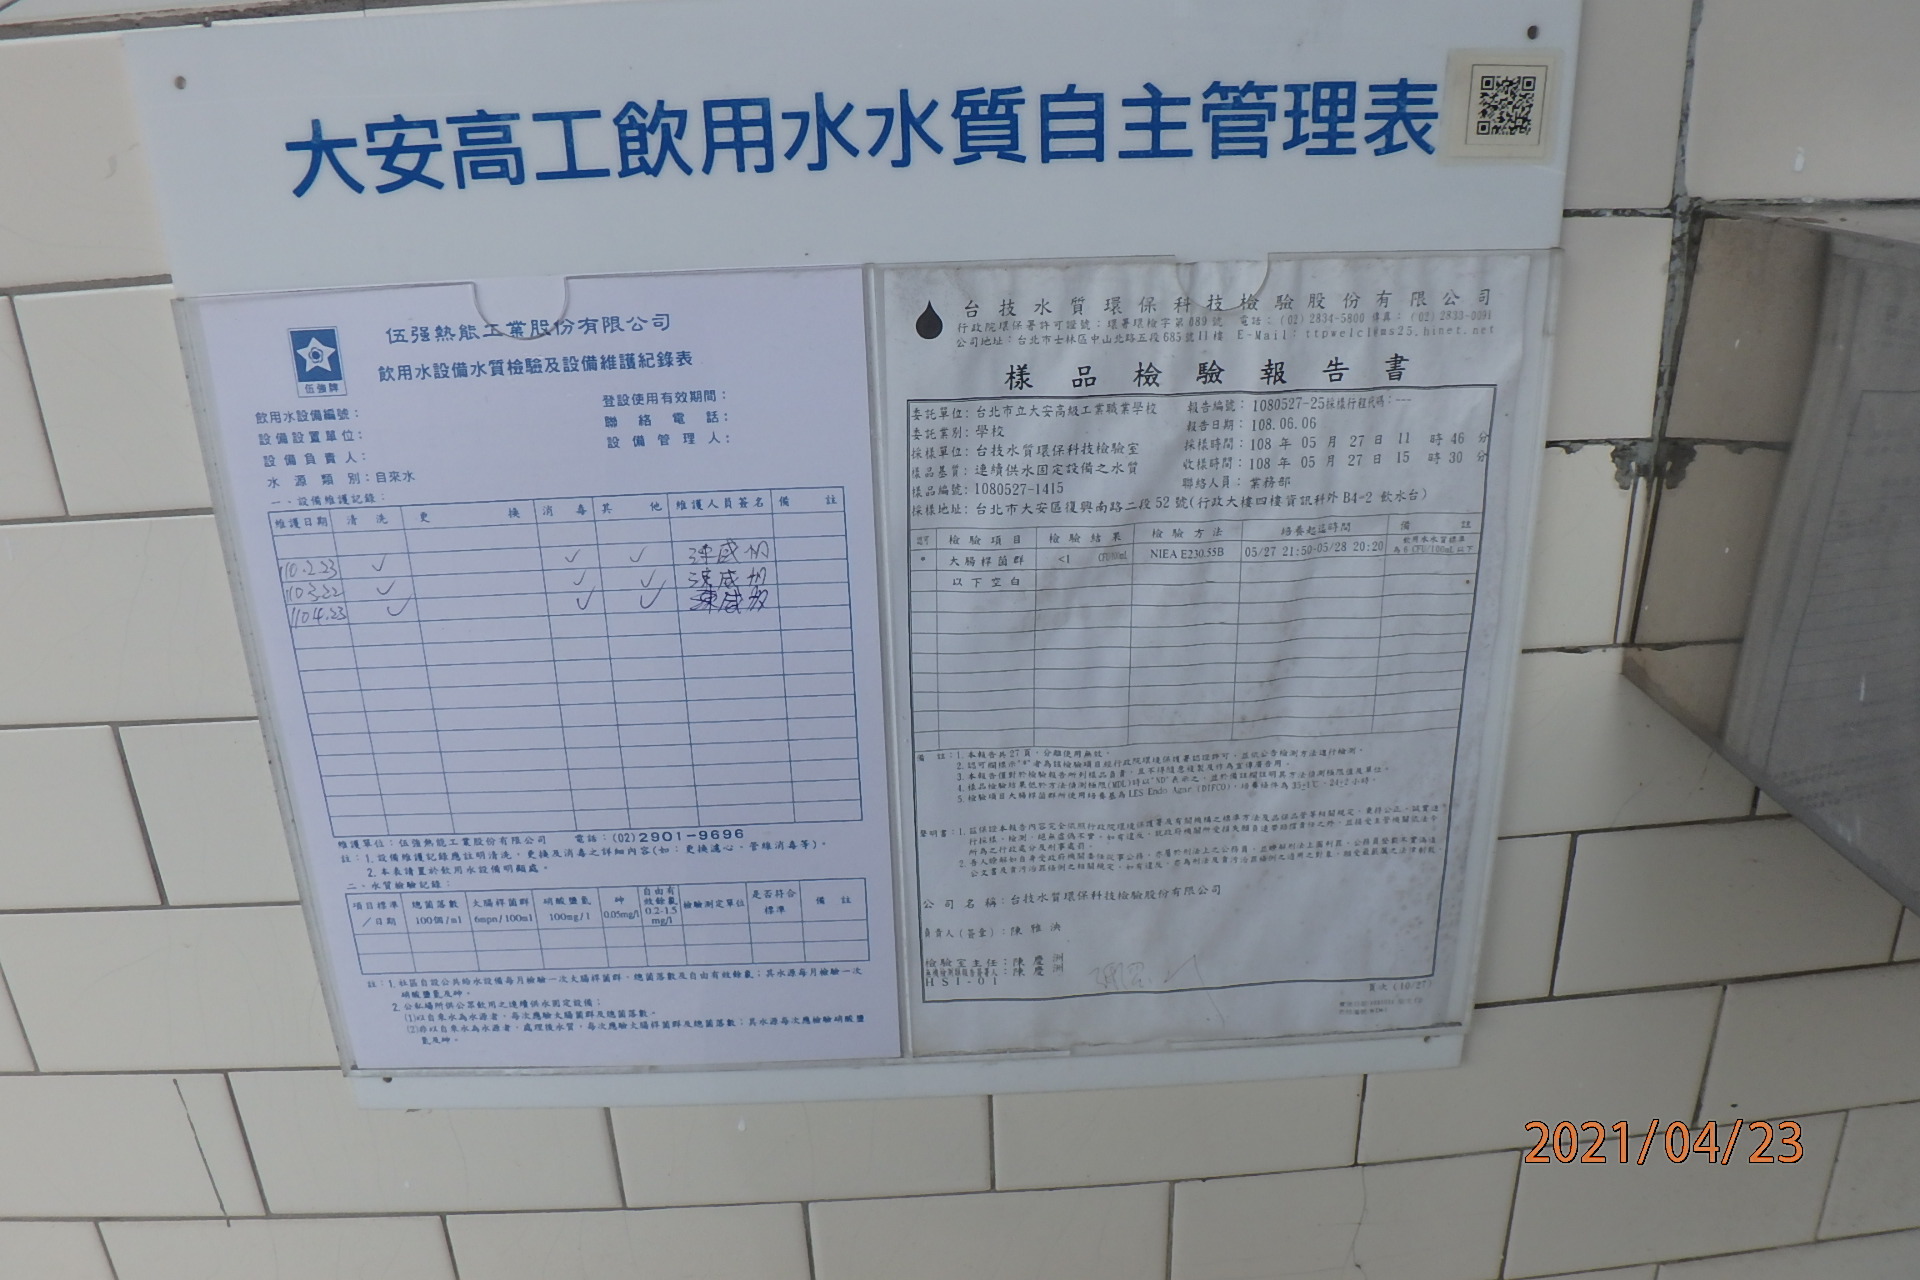 大安高工飲用水水質自主管理表
伍强熱能工業股份有限公司
飲用水設備水質檢驗及設備維護紀錄表
伍強牌
登設使用有效期間：
飲用水設備編號：
聯絡電話：
設備設置單位：
設備管理人：
設備負責人：
水源類別：自來水
一、設備維護記錄：
維護日期 清洗 更換 消毒 其他 維護人員簽名 備註
110.2.23 ✓ ✓ ✓
110.3.22 ✓ ✓ ✓
110.4.23 ✓ ✓ ✓
維護單位：伍強熱能工業股份有限公司 電話：(02)2901-9696
註：1.設備維護記錄應註明清洗、更換及消毒之詳細內容(如：更換濾心、管線消毒等)。
2.本表請置於飲用水設備明顯處。
二、水質檢驗記錄：
項目標準／日期 總菌落數100個/ml 大腸桿菌群6mpn/100ml 硝酸鹽氮100mg/l 砷0.05mg/l 自由有效餘氯0.2-1.5mg/l 檢驗測定單位 是否符合標準 備註
註：1.社區自設公共給水設備每月檢驗一次大腸桿菌群、總菌落數及自由有效餘氯；其水源每月檢驗一次
硝酸鹽氮及砷。
2.公私場所供公眾飲用之連續供水固定設備：
(1)以自來水為水源者，每次應驗大腸桿菌群及總菌落數。
(2)非以自來水為水源者，處理後水質，每次應驗大腸桿菌群及總菌落數；其水源每次應檢驗硝酸鹽
氮及砷。
台技水質環保科技檢驗股份有限公司
行政院環保署許可證號：環署環檢字第089號 電話：(02)2834-5800 傳真：(02)2833-0091
公司地址：台北市士林區中山北路五段685號11樓 E-Mail：ttpwelcl@ms25.hinet.net
樣品檢驗報告書
委託單位：台北市立大安高級工業職業學校 報告編號：1080527-25採樣行程代碼：---
委託業別：學校 報告日期：108.06.06
採樣單位：台技水質環保科技檢驗室 採樣時間：108年05月27日11時46分
樣品基質：連續供水固定設備之水質 收樣時間：108年05月27日15時30分
樣品編號：1080527-1415 聯絡人員：業務部
採樣地址：台北市大安區復興南路二段52號(行政大樓四樓資訊科外B4-2飲水台)
認可 檢驗項目 檢驗結果 檢驗方法 培養起迄時間 備註
* 大腸桿菌群 <1 CFU/100mL NIEA E230.55B 05/27 21:50-05/28 20:20 飲用水水質標準為6 CFU/100mL以下
以下空白
備註：1.本報告共27頁，分離使用無效。
2.認可欄標示"*"者為該檢驗項目經行政院環境保護署認證許可，並依公告檢測方法進行檢測。
3.本報告僅對於檢驗報告所列樣品負責，並不得隨意複製及作為宣傳廣告用。
4.樣品檢驗結果低於方法偵測極限(MDL)時以"ND"表示之，並於備註欄註明其方法偵測極限值及單位。
5.檢驗項目大腸桿菌群所使用培養基為LES Endo Agar (DIFCO)，培養條件為35±1℃、24±2小時。
公司名稱：台技水質環保科技檢驗股份有限公司
負責人(簽章)：陳雅
檢驗室主任：陳慶洲
陳慶洲
HSI-01
頁次(10/27)
2021/04/23